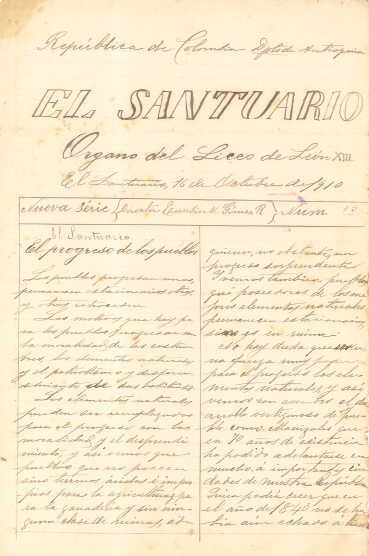 República de Colombia Dpto de Antioquia
EL SANTUARIO
Organo del Liceo de León XIII
El Santuario, 16 de Octubre de 1910
Nueva Série Director Gómez R Num. 1º
El Santuario
El progreso de los pueblos
Los pueblos progresan unos,
permanecen estacionarios otros, y
otros retroceden.
Los motivos que hay pa
ra los pueblos progresar son
la moralidad de las costum
bres, los elementos naturales
y el patriotismo y desprendi
miento de sus habitantes.
Los elementos naturales
pueden ser reemplazados
para el progreso con la
moralidad y el desprendi
miento, y asi vemos que
pueblos que no poseen
sino tierras áridas é impro
pias para la agricultura, pa
ra la ganadería y sin nin
guna clase de minas, ad
quieren, no obstante, un
progreso sorprendente.
Vemos también pueblos
que poseedores de los me
jores elementos naturales
permanecen estacionarios,
sino es en ruina.
No hay duda que
una fuerza muy
para el progreso los ele
mentos naturales, y así
vemos con asombro el de
sarrollo de pue
blo como Manizales que
en 70 años de existencia
ha podido adelantarse en
mucho á importantes ciu
dades de nuestra República.
Quien podrá creer que en
el año de 1840 no se ha
bía aún echado á